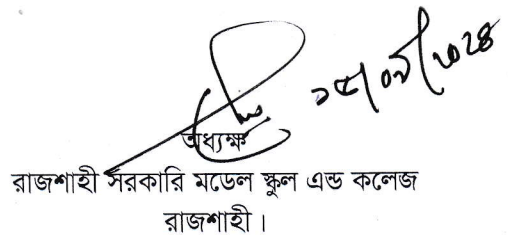 ১৫/০৯/২০২৪
অধ্যক্ষ
রাজশাহী সরকারি মডেল স্কুল এন্ড কলেজ
রাজশাহী।